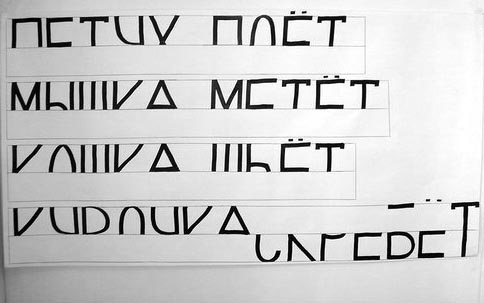 ПЕТУХ ПОЁТ
МЫШКА МЕТЁТ
КОШКА ШЬЁТ
КУРОЧКА СКРЕБЁТ